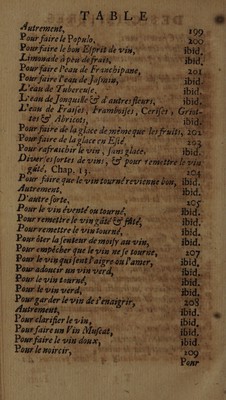 TABLE
Autrement, 199
Pour faire le Populo, 200
Pour faire le bon Esprit de vin, ibid.
Limonade à peu de frais, ibid.
Pour faire l'eau de Franchipane, 201
Pour faire l'eau de Josmin, ibid.
L'eau de Tubereuse, ibid.
L'eau de Jonquille & d'autres fleurs, ibid.
L'eau de Fraises, Framboises, Cerises, Griot-
tes & Abricots, ibid.
Pour faire de la glace de même que les fruits, 202
Pour faire de la glace en Esté, 203
Pour rafraîchir le vin, sans glace, ibid.
Diverses sortes de vins, & pour remettre le vin
gâté, Chap. 13. 204
Pour faire que le vin tourné revienne bon, ibid.
Autrement, ibid.
D'autre sorte, 205
Pour le vin éventé ou tourné, ibid.
Pour remettre le vin gâté & fûté, ibid.
Pour remettre le vin tourné, ibid.
Pour ôter la senteur de moisy au vin, ibid.
Pour empêcher que le vin ne se tourne, 207
Pour le vin qui sent l'aigre ou l'amer, ibid.
Pour adoucir un vin verd, ibid.
Pour le vin tourné, ibid.
Pour le vin verd, ibid.
Pour garder le vin de s'enaigrir, 208
Autrement, ibid.
Pour clarifier le vin, ibid.
Pour faire un Vin Muscat, ibid.
Pour faire le vin doux, ibid.
Pour le noircir, 209
Pour